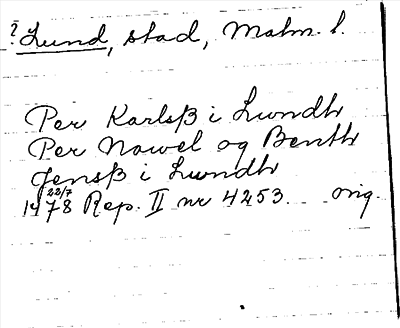 ? Lund, stad, Malm. l.
Per Karlsß i Lundh
Per Nawel og Benth
Jensß i Lundh
22/7
1478 Rep. II nr 4253. orig.